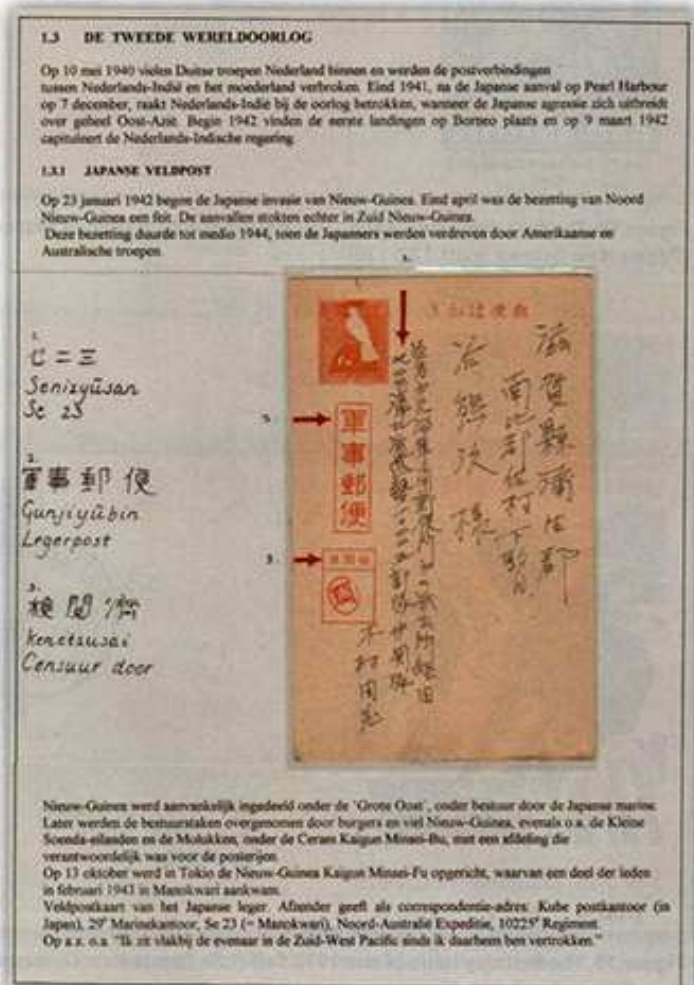 1.3 DE TWEEDE WERELDOORLOG
Op 10 mei 1940 vielen Duitse troepen Nederland binnen en werden de postverbindingen
tussen Nederlands-Indië en het moederland verbroken. Eind 1941, na de Japanse aanval op Pearl Harbour
op 7 december, raakt Nederlands-Indië bij de oorlog betrokken, wanneer de Japanse agressie zich uitbreidt
over geheel Oost-Azië. Begin 1942 vinden de eerste landingen op Borneo plaats en op 9 maart 1942
capituleert de Nederlands-Indische regering.
1.3.1 JAPANSE VELDPOST
Op 23 januari 1942 begon de Japanse invasie van Nieuw-Guinea. Eind april was de bezetting van Noord
Nieuw-Guinea een feit. De aanvallen stokten echter in Zuid Nieuw-Guinea.
Deze bezetting duurde tot medio 1944, toen de Japanners werden verdreven door Amerikaanse en
Australische troepen.
1.
セ二三
Senizyūsan
Se 23
2.
軍事郵便
Gunjiyūbin
Legerpost
3.
検閲済
Kenetsusai
Censuur door
きがは便郵
軍事郵便
滋賀縣
様
木村
Nieuw-Guinea werd aanvankelijk ingedeeld onder de 'Grote Oost', onder bestuur door de Japanse marine.
Later werden de bestuurstaken overgenomen door burgers en viel Nieuw-Guinea, evenals o.a. de Kleine
Soenda-eilanden en de Molukken, onder de Ceram Kaigun Minsei-Bu, met een afdeling die
verantwoordelijk was voor de posterijen.
Op 13 oktober werd in Tokio de Nieuw-Guinea Kaigun Minsei-Fu opgericht, waarvan een deel der leden
in februari 1943 in Manokwari aankwam.
Veldpostkaart van het Japanse leger. Afzender geeft als correspondentie-adres: Kube postkantoor (in
Japan), 29e Marinekantoor, Se 23 (= Manokwari), Noord-Australië Expeditie, 10225e Regiment.
Op a.z. o.a. "Ik zit vlakbij de evenaar in de Zuid-West Pacific sinds ik daarheen ben vertrokken."